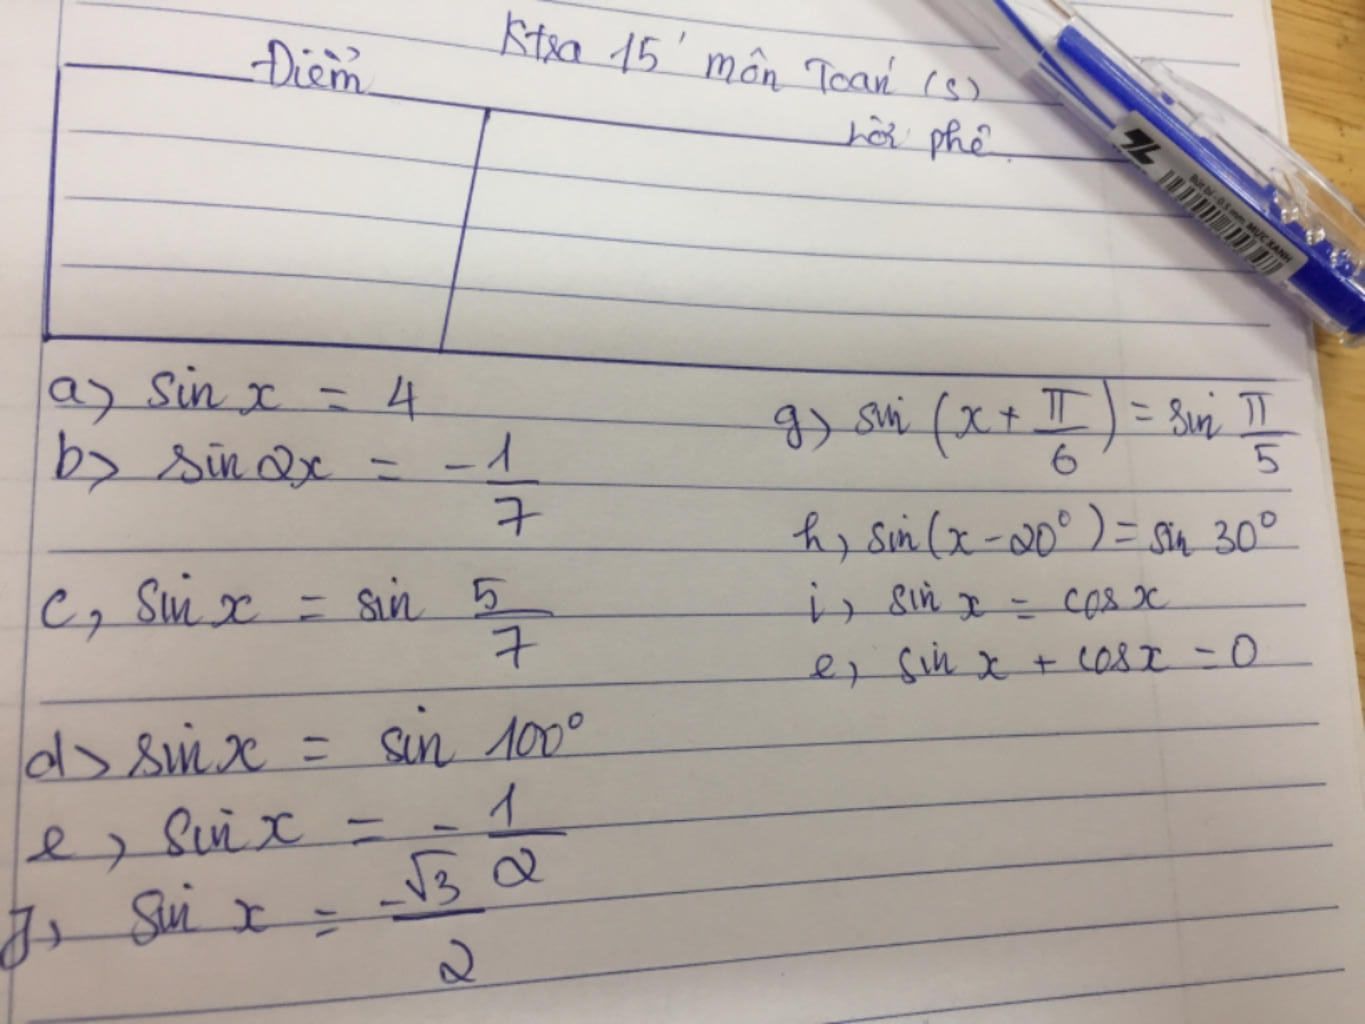 Ktra 15' môn Toán (s)
Điểm
Lời phê
a) sin x = 4
b) sin 2x = -1/7
c, sin x = sin 5/7
d) sin x = sin 100°
e, sin x = -1/2
f, sin x = -√3/2
g) sin (x + π/6) = sin π/5
h, sin(x - 20°) = sin 30°
i, sin x = cos x
e, sin x + cos x = 0
Bút bi - 0.5 mm MỰC XANH